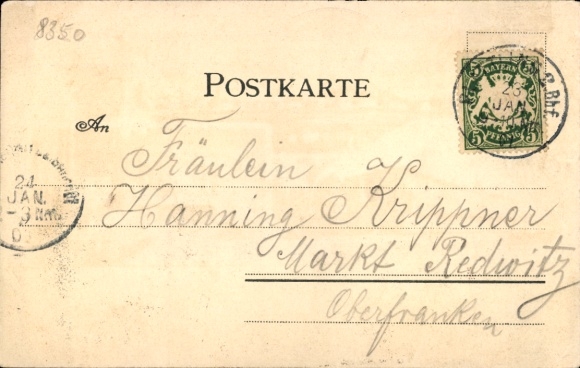 8350
POSTKARTE
An
Fräulein
Hanning Krippner
Markt Redwitz
Oberfranken
5 BAYERN 5
5 PFENNIG 5
2. Bhf
23
JAN
24
JAN.